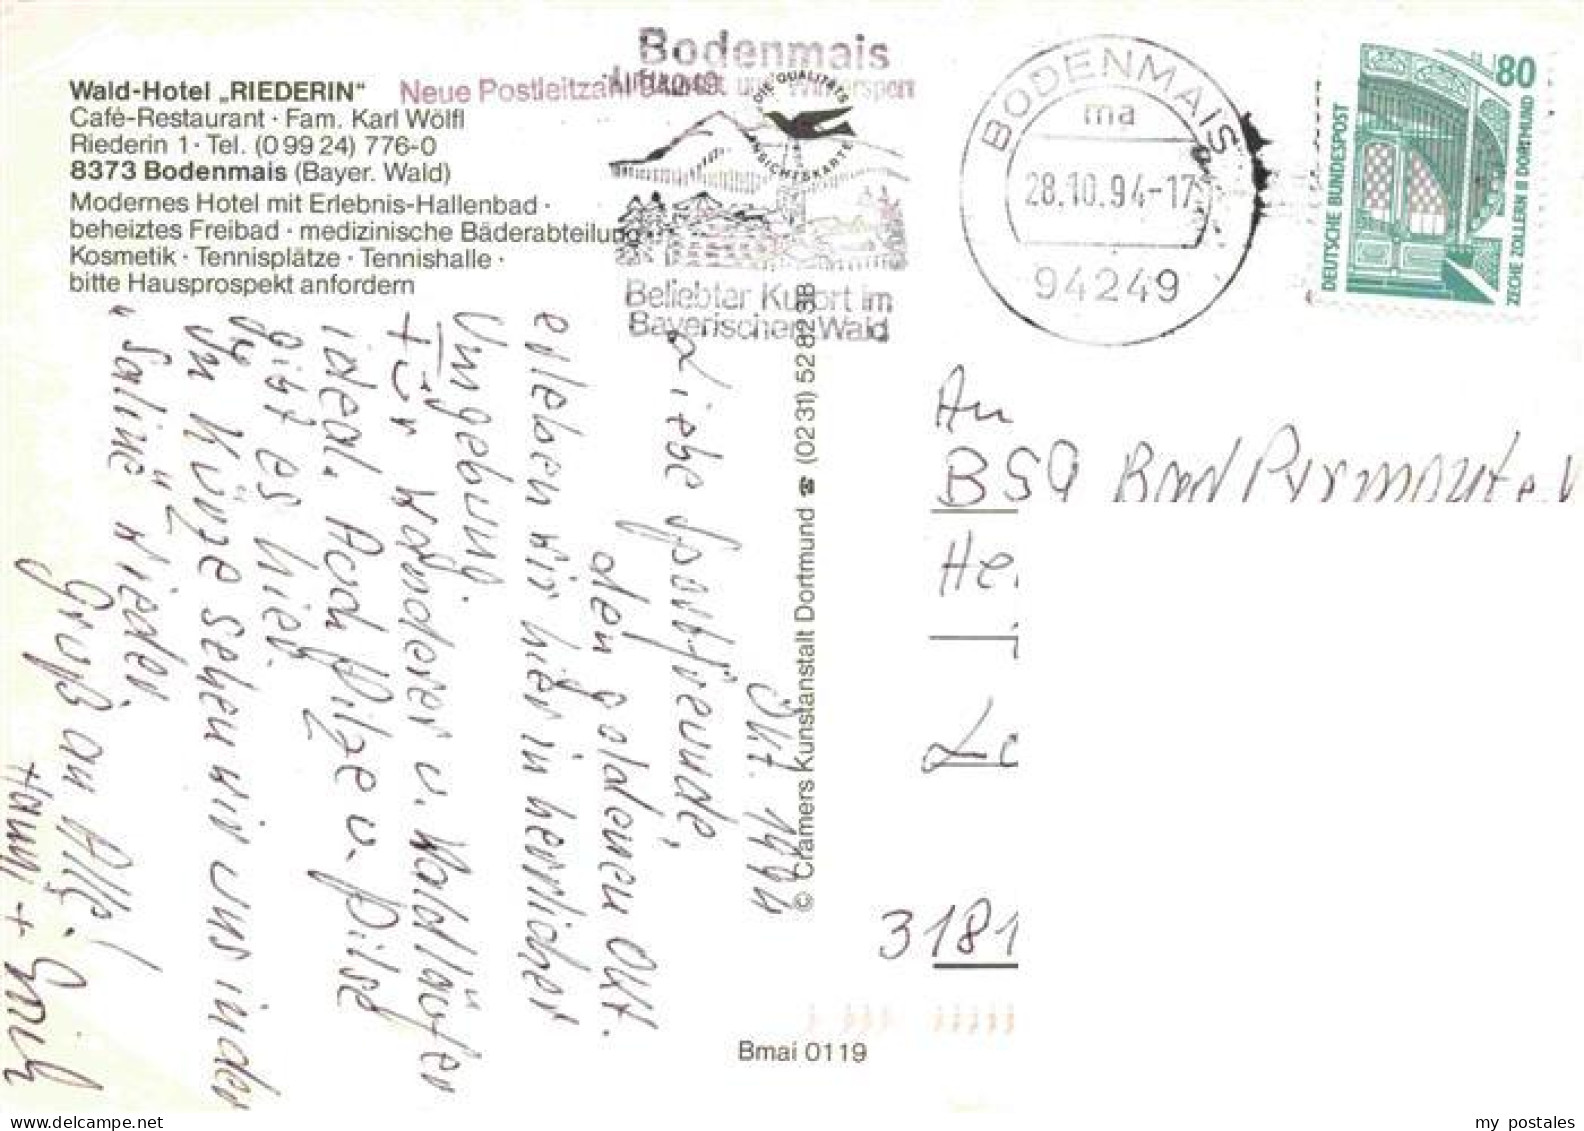 Wald-Hotel „RIEDERIN“
Café-Restaurant · Fam. Karl Wölfl
Riederin 1 · Tel. (0 99 24) 776-0
8373 Bodenmais (Bayer. Wald)
Modernes Hotel mit Erlebnis-Hallenbad ·
beheiztes Freibad · medizinische Bäderabteilung
Kosmetik · Tennisplätze · Tennishalle ·
bitte Hausprospekt anfordern
Neue Postleitzahl 94249
Bodenmais
Wintersport
DIE QUALITÄTS
ANSICHTSKARTE
Beliebter Kurort im
Bayerischen Wald
BODENMAIS
ma
28.10.94-17
94249
80
DEUTSCHE BUNDESPOST
ZECHE ZOLLERN II DORTMUND
Okt. 1994
Liebe Sportfreunde,
den goldenen Okt.
erleben wir hier in herrlicher
Umgebung.
Für Wanderer u. Waldläufer
ideal. Auch Pilze u. Pilse
gibt es hier.
In Kürze sehen wir uns in der
„Saline" wieder.
Gruß an Alle!
Hanni + Erich
© Cramers Kunstanstalt Dortmund ☎ (02 31) 52 82 38
An
BSG Bad Pyrmont e.V
He
3181
Bmai 0119
my postales